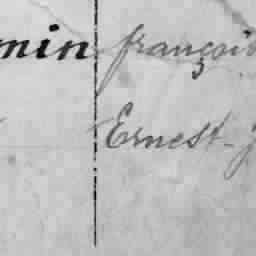 min françois
Ernest-J